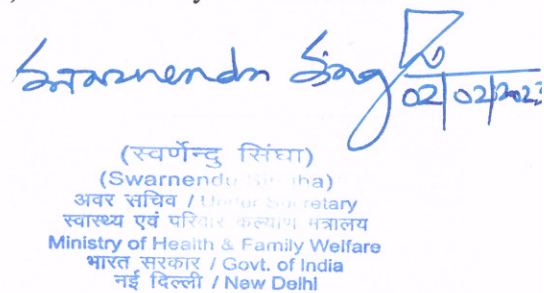 Swarnendu Singha
02/02/2023
(स्वर्णेन्दु सिंघा)
(Swarnendu Singha)
अवर सचिव / Under Secretary
स्वास्थ्य एवं परिवार कल्याण मंत्रालय
Ministry of Health & Family Welfare
भारत सरकार / Govt. of India
नई दिल्ली / New Delhi